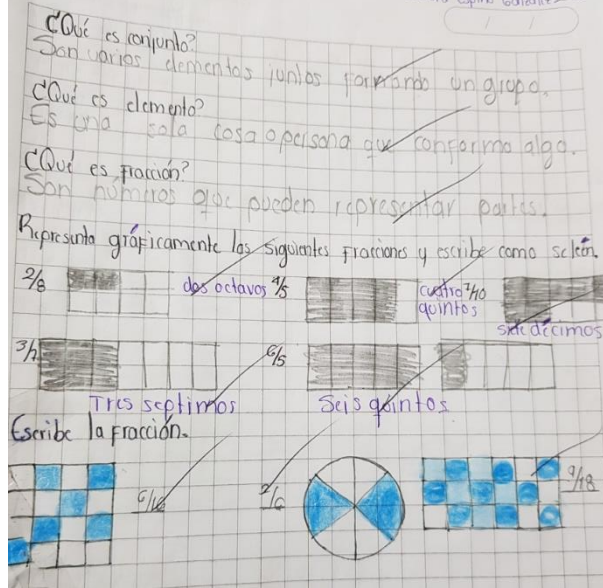 ¿Qué es conjunto?
Son varios elementos juntos formando un grupo.
¿Qué es elemento?
Es una sola cosa o persona que conforma algo.
¿Qué es fracción?
Son números que pueden representar partes.
Representa gráficamente las siguientes fracciones y escribe como se leén.
2/8 dos octavos 4/5 cuatro quintos 7/10 siete décimos
3/7 Tres septimos 6/5 Seis quintos
Escribe la fracción.
6/16 2/6 9/18